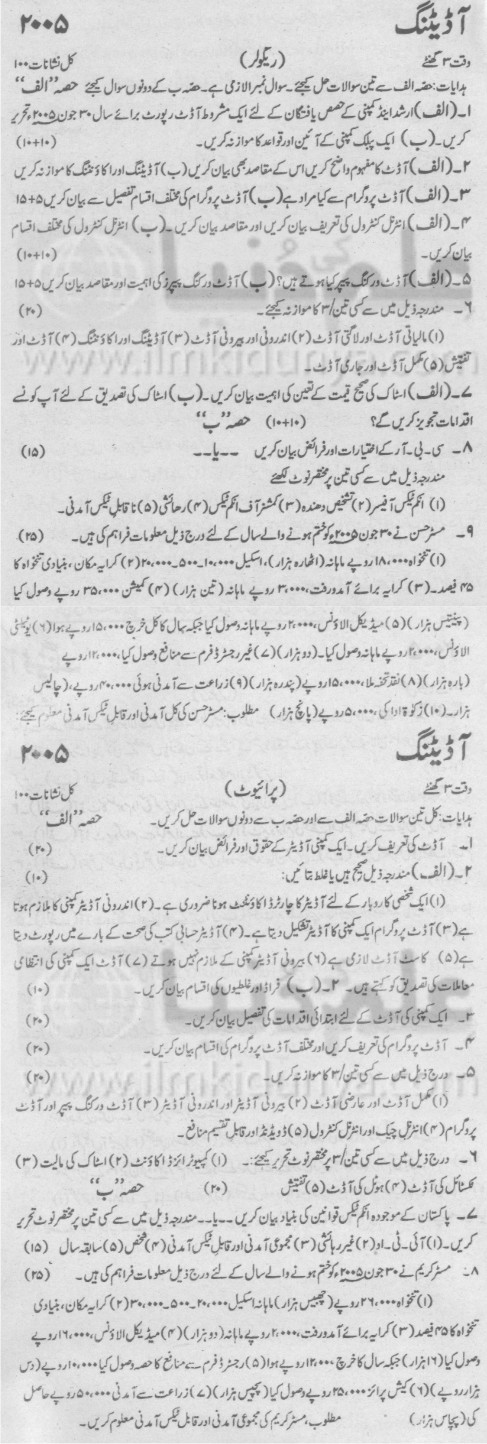 آڈیٹنگ ۲۰۰۵
وقت ۳ گھنٹے (ریگولر) کل نشانات ۱۰۰
ہدایات: حصّہ الف سے تین سوالات حل کیجئے۔ سوال نمبر الازمی ہے۔ حصّہ ب کے دونوں سوال کیجئے حصہ "الف"
۱۔ (الف) ارشد اینڈ کمپنی کے حصص یافتگان کے لئے ایک مشروط آڈٹ رپورٹ برائے سال ۳۰ جون ۲۰۰۵ء تحریر
کریں۔ (ب) ایک پبلک کمپنی کے آئین اور قواعد کا موازنہ کریں۔ (۱۰+۱۰)
۲۔ (الف) آڈٹ کا مفہوم واضح کریں اس کے مقاصد بھی بیان کریں (ب) آڈیٹنگ اور اکاؤنٹنگ کا موازنہ کریں
۳۔ (الف) آڈٹ پروگرام سے کیا مراد ہے (ب) آڈٹ پروگرام کی مختلف اقسام تفصیل سے بیان کریں ۵+۱۵
۴۔ (الف) انٹرنل کنٹرول کی تعریف بیان کریں اور مقاصد بیان کریں۔ (ب) انٹرنل کنٹرول کی مختلف اقسام
بیان کریں۔ (۱۰+۱۰)
۵۔ (الف) آڈٹ ورکنگ پیپر کیا ہوتے ہیں؟ (ب) آڈٹ ورکنگ پیپرز کی اہمیت اور مقاصد بیان کریں ۵+۱۵
۶۔ مندرجہ ذیل میں سے کسی تین/۳ کا موازنہ کیجئے۔ (۲۰)
(۱) مالیاتی آڈٹ اور لاگتی آڈٹ (۲) اندرونی اور بیرونی آڈٹ (۳) آڈیٹنگ اور اکاؤنٹنگ (۴) آڈٹ اور
تفتیش (۵) مکمل آڈٹ اور جاری آڈٹ۔
۷۔ (الف) اسٹاک کی صحیح قیمت کے تعین کی اہمیت بیان کریں۔ (ب) اسٹاک کی تصدیق کے لئے آپ کونسے
اقدامات تجویز کریں گے؟ (۱۰+۱۰) حصہ "ب"
۸۔ سی۔ بی۔ آر کے اختیارات اور فرائض بیان کریں ۔۔یا۔۔ (۱۵)
مندرجہ ذیل میں سے کسی تین پر مختصر نوٹ لکھئے
(۱) انکم ٹیکس آفیسر (۲) تشخیص دھندہ (۳) کمشنر آف انکم ٹیکس (۴) رھائشی (۵) ناقابل ٹیکس آمدنی۔
۹۔ مسٹر حسن نے ۳۰ جون ۲۰۰۵ء کو ختم ہونے والے سال کے لئے درج ذیل معلومات فراہم کی ہیں۔ (۲۵)
(۱) تنخواہ ۱۸,۰۰۰ روپے ماہانہ (اٹھارہ ہزار)، اسکیل ۱۰,۰۰۰۔۵۰۰۔۲۰,۰۰۰ (۲) کرایہ مکان، بنیادی تنخواہ کا
۴۵ فیصد۔ (۳) کرایہ برائے آمدورفت، ۳,۰۰۰ روپے ماہانہ (تین ہزار) (۴) کمیشن ۳۵,۰۰۰ روپے وصول کیا
(پینتیس ہزار) (۵) میڈیکل الاؤنس، ۲,۰۰۰ روپے ماہانہ وصول کیا جبکہ سال کا کل خرچ ۱۵,۰۰۰ روپے ہوا (۶) یوٹیلٹی
الاؤنس، ۲,۰۰۰ روپے ماہانہ وصول کیا۔ (دو ہزار) (۷) غیر رجسٹرڈ فرم سے منافع وصول کیا، ۱۲,۰۰۰ روپے
(بارہ ہزار) (۸) نقد تحفہ ملا، ۱۵,۰۰۰ روپے (پندرہ ہزار) (۹) زراعت سے آمدنی ہوئی ۴۰,۰۰۰ روپے، (چالیس
ہزار۔ (۱۰) زکوٰۃ ادا کی، ۵,۰۰۰ روپے (پانچ ہزار) مطلوب: مسٹر حسن کی کل آمدنی اور قابل ٹیکس آمدنی معلوم کیجئے:
آڈیٹنگ ۲۰۰۵
وقت ۳ گھنٹے (پرائیوٹ) کل نشانات ۱۰۰
ہدایات: کل تین سوالات حصہ الف سے اور حصہ ب سے دونوں سوالات حل کریں۔ حصہ "الف"
۱۔ آڈٹ کی تعریف کریں۔ ایک کمپنی آڈیٹر کے حقوق اور فرائض بیان کریں۔ (۲۰)
۲۔ (الف) مندرجہ ذیل صحیح ہیں یا غلط بتائیں: (۱۰)
(۱) ایک شخصی کاروبار کے لئے آڈیٹر کا چارٹرڈ اکاؤنٹنٹ ہونا ضروری ہے۔ (۲) اندرونی آڈیٹر کمپنی کا ملازم ہوتا
ہے (۳) آڈٹ پروگرام ایک کمپنی کا آڈیٹر تشکیل دیتا ہے۔ (۴) آڈیٹر حسابی کتب کی صحت کے بارے میں رپورٹ دیتا
ہے (۵) کاسٹ آڈٹ لازمی ہے (۶) بیرونی آڈیٹر کمپنی کے ملازم نہیں ہوتے (۷) آڈٹ ایک کمپنی کی انتظامی
معاملات کی تصدیق کو کہتے ہیں۔ ۲۔ (ب) فراڈ اور غلطیوں کی اقسام بیان کریں۔ (۱۰)
۳۔ ایک کمپنی کی آڈٹ کے لئے ابتدائی اقدامات کی تفصیل بیان کریں۔ (۲۰)
۴۔ آڈٹ پروگرام کی تعریف کریں اور مختلف آڈٹ پروگرام کی اقسام بیان کریں۔ (۲۰)
۵۔ درج ذیل میں سے کسی تین/۳ کا موازنہ کریں۔ (۲۰)
(۱) مکمل آڈٹ اور عارضی آڈٹ (۲) بیرونی آڈیٹر اور اندرونی آڈیٹر (۳) آڈٹ ورکنگ پیپر اور آڈٹ
پروگرام (۴) انٹرنل چیک اور انٹرنل کنٹرول (۵) ڈویڈنڈ اور قابل تقسیم منافع۔
۶۔ درج ذیل میں سے کسی تین/۳ پر مختصر نوٹ تحریر کیجئے: (۱) کمپیوٹرائزڈ اکاؤنٹ (۲) اسٹاک کی مالیت (۳)
ٹکسٹائل کی آڈٹ (۴) ہوٹل کی آڈٹ (۵) تفتیش (۲۰) حصہ "ب"
۷۔ پاکستان کے موجودہ انکم ٹیکس قوانین کی بنیاد بیان کریں۔ ۔۔یا۔۔ مندرجہ ذیل میں سے کسی تین پر مختصر نوٹ تحریر
کریں۔ (۱) آئی۔ٹی۔او (۲) غیر رہائشی (۳) مجموعی آمدنی اور قابل ٹیکس آمدنی (۴) شخص (۵) سابقہ سال (۱۵)
۸۔ مسٹر کریم نے ۳۰ جون ۲۰۰۵ء کو ختم ہونے والے سال کے لئے درج ذیل معلومات فراہم کی ہیں۔ (۲۵)
(۱) تنخواہ ۲۶,۰۰۰ روپے (چھبیس ہزار) ماہانہ اسکیل ۲۰,۰۰۰۔۵۰۰۔۳۰,۰۰۰ (۲) کرایہ مکان، بنیادی
تنخواہ کا ۴۵ فیصد (۳) کرایہ برائے آمدورفت، ۲,۰۰۰ روپے ماہانہ (دو ہزار) (۴) میڈیکل الاؤنس، ۱۶,۰۰۰ روپے
وصول کیا (۱۶ ہزار) جبکہ سال کا خرچ ۱۲,۰۰۰ روپے ہوا (۵) رجسٹرڈ فرم سے منافع کا حصہ وصول کیا ۱۰,۰۰۰ روپے (دس
ہزار روپے) (۶) کیش پرائز ۲۵,۰۰۰ روپے وصول کیا (پچیس ہزار) (۷) زراعت سے آمدنی ۵۰,۰۰۰ روپے حاصل
کی (پچاس ہزار) مطلوب، مسٹر کریم کی مجموعی آمدنی اور قابل ٹیکس آمدنی معلوم کریں۔
علم کی دنیا
www.ilmkidunya.com
علم کی دنیا
www.ilmkidunya.com